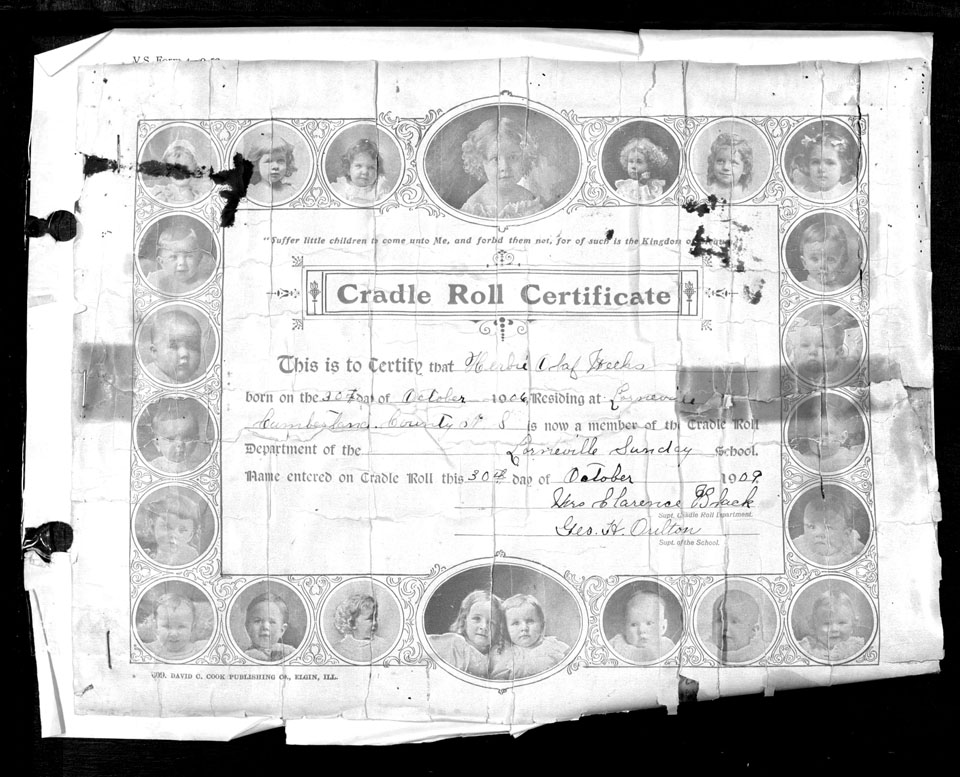 V.S. Form
"Suffer little children to come unto Me, and forbid them not, for of such is the Kingdom of
Cradle Roll Certificate
This is to Certify that Herbie Olaf Weeks
born on the 30th day of October 1906, Residing at Lorneville
Cumberland County N S is now a member of the Cradle Roll
Department of the Lorneville Sunday School.
Name entered on Cradle Roll this 30th day of October 1909.
Mrs Clarence Black
Supt. Cradle Roll Department.
Geo. H. Oulton
Supt. of the School.
DAVID C. COOK PUBLISHING CO., ELGIN, ILL.